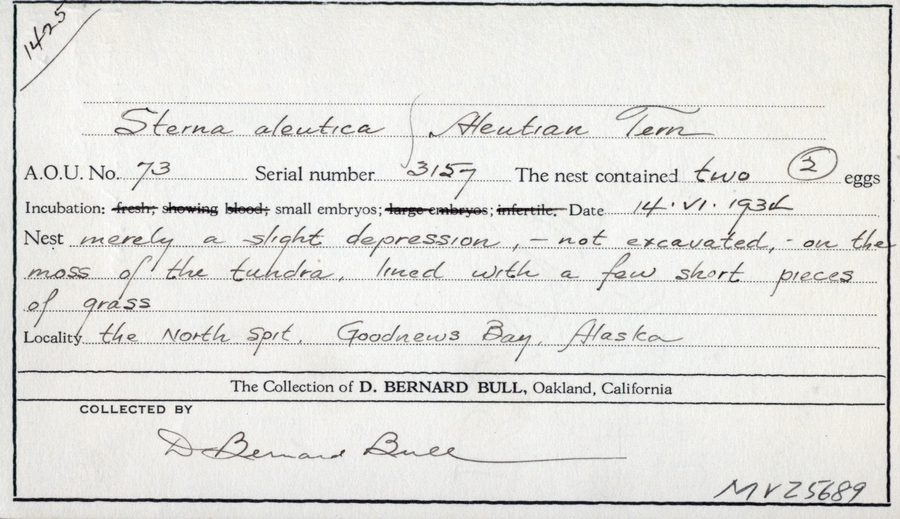 1425
Sterna aleutica Aleutian Tern
A.O.U. No. 73 Serial number 3157 The nest contained two 2 eggs
Incubation: fresh; showing blood; small embryos; large embryos; infertile. Date 14.VI.1934
Nest merely a slight depression, - not excavated, - on the
moss of the tundra, lined with a few short pieces
of grass
Locality the North Spit, Goodnews Bay, Alaska
The Collection of D. BERNARD BULL, Oakland, California
COLLECTED BY
D Bernard Bull
MVZ5689